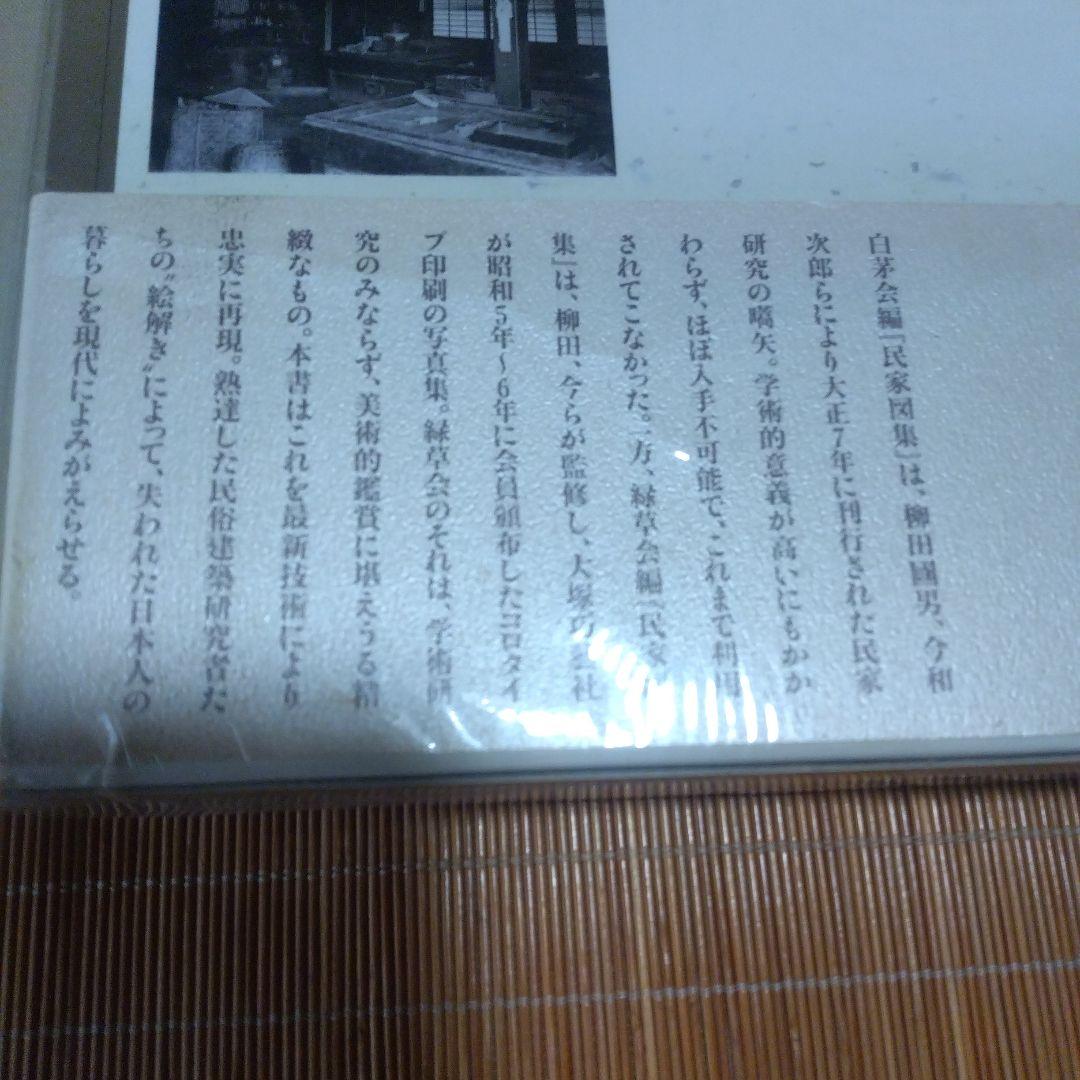 白茅会編『民家図集』は、柳田國男、今和
次郎らにより大正7年に刊行された民家
研究の嚆矢。学術的意義が高いにもかか
わらず、ほぼ入手不可能で、これまで利用
されてこなかった。一方、緑草会編『民家図
集』は、柳田、今らが監修し、大塚巧芸社
が昭和5年〜6年に会員頒布したコロタイ
プ印刷の写真集。緑草会のそれは、学術研
究のみならず、美術的鑑賞に堪えうる精
緻なもの。本書はこれを最新技術により
忠実に再現。熟達した民俗建築研究者た
ちの“絵解き”によって、失われた日本人の
暮らしを現代によみがえらせる。